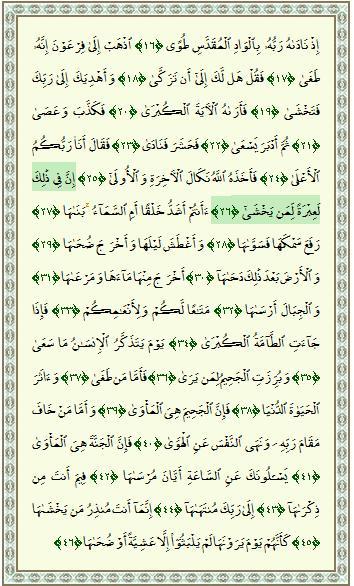 إِذْ نَادَىٰهُ رَبُّهُۥ بِٱلْوَادِ ٱلْمُقَدَّسِ طُوًى ﴿١٦﴾ ٱذْهَبْ إِلَىٰ فِرْعَوْنَ إِنَّهُۥ
طَغَىٰ ﴿١٧﴾ فَقُلْ هَل لَّكَ إِلَىٰٓ أَن تَزَكَّىٰ ﴿١٨﴾ وَأَهْدِيَكَ إِلَىٰ رَبِّكَ
فَتَخْشَىٰ ﴿١٩﴾ فَأَرَىٰهُ ٱلْءَايَةَ ٱلْكُبْرَىٰ ﴿٢٠﴾ فَكَذَّبَ وَعَصَىٰ
﴿٢١﴾ ثُمَّ أَدْبَرَ يَسْعَىٰ ﴿٢٢﴾ فَحَشَرَ فَنَادَىٰ ﴿٢٣﴾ فَقَالَ أَنَا۠ رَبُّكُمُ
ٱلْأَعْلَىٰ ﴿٢٤﴾ فَأَخَذَهُ ٱللَّهُ نَكَالَ ٱلْءَاخِرَةِ وَٱلْأُولَىٰٓ ﴿٢٥﴾ إِنَّ فِى ذَٰلِكَ
لَعِبْرَةً لِّمَن يَخْشَىٰٓ ﴿٢٦﴾ ءَأَنتُمْ أَشَدُّ خَلْقًا أَمِ ٱلسَّمَآءُ ۚ بَنَىٰهَا ﴿٢٧﴾
رَفَعَ سَمْكَهَا فَسَوَّىٰهَا ﴿٢٨﴾ وَأَغْطَشَ لَيْلَهَا وَأَخْرَجَ ضُحَىٰهَا ﴿٢٩﴾
وَٱلْأَرْضَ بَعْدَ ذَٰلِكَ دَحَىٰهَآ ﴿٣٠﴾ أَخْرَجَ مِنْهَا مَآءَهَا وَمَرْعَىٰهَا ﴿٣١﴾
وَٱلْجِبَالَ أَرْسَىٰهَا ﴿٣٢﴾ مَتَٰعًا لَّكُمْ وَلِأَنْعَٰمِكُمْ ﴿٣٣﴾ فَإِذَا
جَآءَتِ ٱلطَّآمَّةُ ٱلْكُبْرَىٰ ﴿٣٤﴾ يَوْمَ يَتَذَكَّرُ ٱلْإِنسَٰنُ مَا سَعَىٰ
﴿٣٥﴾ وَبُرِّزَتِ ٱلْجَحِيمُ لِمَن يَرَىٰ ﴿٣٦﴾ فَأَمَّا مَن طَغَىٰ ﴿٣٧﴾ وَءَاثَرَ
ٱلْحَيَوٰةَ ٱلدُّنْيَا ﴿٣٨﴾ فَإِنَّ ٱلْجَحِيمَ هِىَ ٱلْمَأْوَىٰ ﴿٣٩﴾ وَأَمَّا مَنْ خَافَ
مَقَامَ رَبِّهِۦ وَنَهَى ٱلنَّفْسَ عَنِ ٱلْهَوَىٰ ﴿٤٠﴾ فَإِنَّ ٱلْجَنَّةَ هِىَ ٱلْمَأْوَىٰ
﴿٤١﴾ يَسْـَٔلُونَكَ عَنِ ٱلسَّاعَةِ أَيَّانَ مُرْسَىٰهَا ﴿٤٢﴾ فِيمَ أَنتَ مِن
ذِكْرَىٰهَآ ﴿٤٣﴾ إِلَىٰ رَبِّكَ مُنتَهَىٰهَآ ﴿٤٤﴾ إِنَّمَآ أَنتَ مُنذِرُ مَن يَخْشَىٰهَا
﴿٤٥﴾ كَأَنَّهُمْ يَوْمَ يَرَوْنَهَا لَمْ يَلْبَثُوٓا۟ إِلَّا عَشِيَّةً أَوْ ضُحَىٰهَا ﴿٤٦﴾